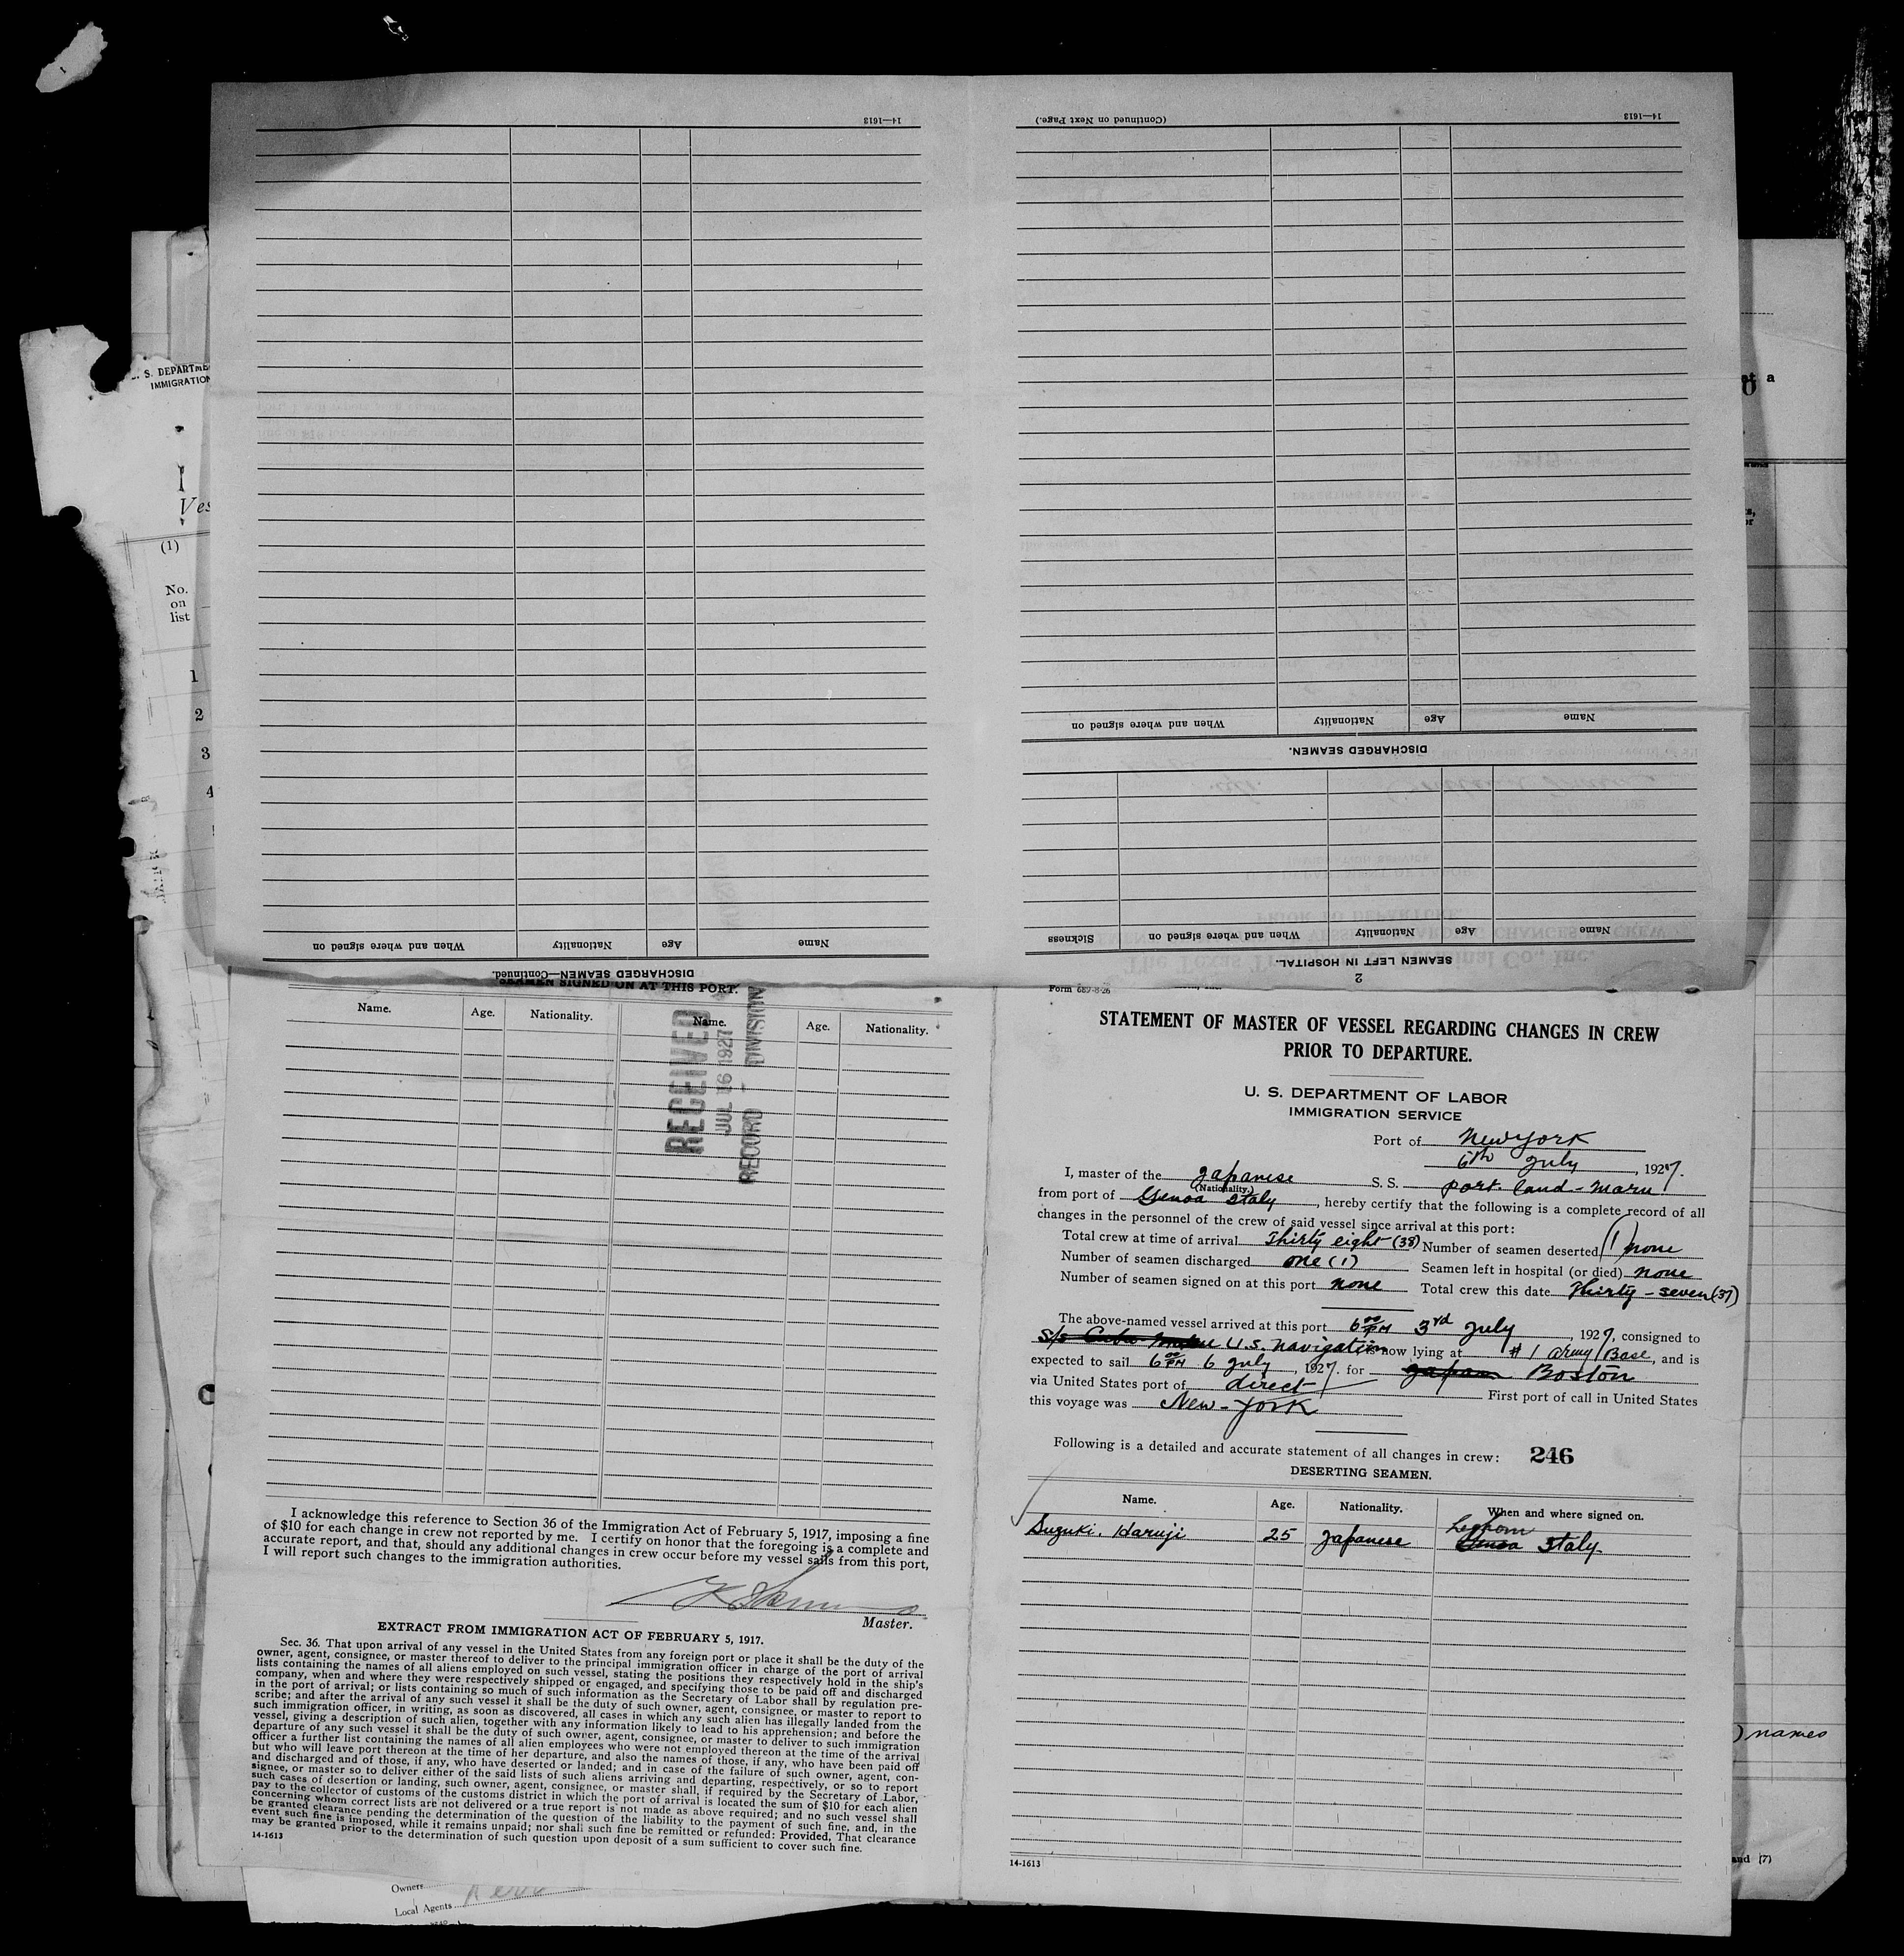 14—1613
(Continued on Next Page.)
14—1613
Name
Age
Nationality
When and where signed on
DISCHARGED SEAMEN.
Name
Age
Nationality
When and where signed on
Sickness
SEAMEN LEFT IN HOSPITAL.
2
Name
Age
Nationality
When and where signed on
DISCHARGED SEAMEN—Continued.
S. DEPARTME
IMMIGRATION
Ves
(1)
No.
on
list
1
2
3
4
SEAMEN SIGNED ON AT THIS PORT.
Name. Age. Nationality. Name. Age. Nationality.
RECEIVED
JUL 16 1927
RECORD - DIVISION
I acknowledge this reference to Section 36 of the Immigration Act of February 5, 1917, imposing a fine
of $10 for each change in crew not reported by me. I certify on honor that the foregoing is a complete and
accurate report, and that, should any additional changes in crew occur before my vessel sails from this port,
I will report such changes to the immigration authorities.
Master.
EXTRACT FROM IMMIGRATION ACT OF FEBRUARY 5, 1917.
Sec. 36. That upon arrival of any vessel in the United States from any foreign port or place it shall be the duty of the
owner, agent, consignee, or master thereof to deliver to the principal immigration officer in charge of the port of arrival
lists containing the names of all aliens employed on such vessel, stating the positions they respectively hold in the ship's
company, when and where they were respectively shipped or engaged, and specifying those to be paid off and discharged
in the port of arrival; or lists containing so much of such information as the Secretary of Labor shall by regulation pre-
scribe; and after the arrival of any such vessel it shall be the duty of such owner, agent, consignee, or master to report to
such immigration officer, in writing, as soon as discovered, all cases in which any such alien has illegally landed from the
vessel, giving a description of such alien, together with any information likely to lead to his apprehension; and before the
departure of any such vessel it shall be the duty of such owner, agent, consignee, or master to deliver to such immigration
officer a further list containing the names of all alien employees who were not employed thereon at the time of the arrival
but who will leave port thereon at the time of her departure, and also the names of those, if any, who have been paid off
and discharged and of those, if any, who have deserted or landed; and in case of the failure of such owner, agent, con-
signee, or master so to deliver either of the said lists of such aliens arriving and departing, respectively, or so to report
such cases of desertion or landing, such owner, agent, consignee, or master shall, if required by the Secretary of Labor,
pay to the collector of customs of the customs district in which the port of arrival is located the sum of $10 for each alien
concerning whom correct lists are not delivered or a true report is not made as above required; and no such vessel shall
be granted clearance pending the determination of the question of the liability to the payment of such fine, and, in the
event such fine is imposed, while it remains unpaid; nor shall such fine be remitted or refunded: Provided, That clearance
may be granted prior to the determination of such question upon deposit of a sum sufficient to cover such fine.
14-1613
Owners
Local Agents
Form 689-8-26
STATEMENT OF MASTER OF VESSEL REGARDING CHANGES IN CREW
PRIOR TO DEPARTURE.
U. S. DEPARTMENT OF LABOR
IMMIGRATION SERVICE
Port of New York
6th July, 1927.
I, master of the Japanese S. S. Port-land-Maru
(Nationality.)
from port of Genoa Italy, hereby certify that the following is a complete record of all
changes in the personnel of the crew of said vessel since arrival at this port:
Total crew at time of arrival Thirty eight (38) Number of seamen deserted (1) none
Number of seamen discharged one (1) Seamen left in hospital (or died) none
Number of seamen signed on at this port none Total crew this date Thirty-seven (37)
The above-named vessel arrived at this port 6 00 PM 3rd July, 1927, consigned to
S/S Cuba Maru U.S. Navigation is now lying at #1 Army Base, and is
expected to sail 6 00 PM 6 July, 1927. for Japan Boston
via United States port of direct First port of call in United States
this voyage was New-York
Following is a detailed and accurate statement of all changes in crew: 246
DESERTING SEAMEN.
Name. Age. Nationality. When and where signed on.
Suzuki. Haruji 25 Japanese Leghorn Genoa Italy
14-1613
at a
) names
and (7)